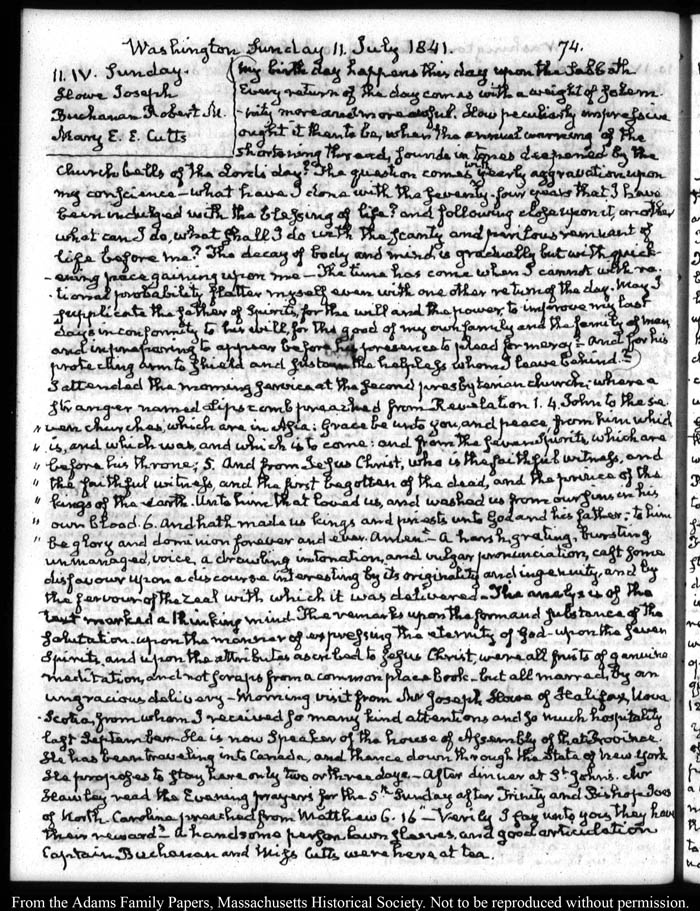 Washington Sunday 11. July 1841. 74.
11. IV. Sunday.
Howe Joseph
Buchanan Robert M.
Mary E. E. Cutts
My birth day happens this day upon the Sabbath
Every return of the day comes with a weight of solem-
-nity more and more awful. How peculiarly impressive
ought it then to be, when the annual warning of the
shortening thread, sounds in tones deepened by the
Church bells of the Lord's day? The question comes with yearly aggravation upon
my conscience—what have I done with the seventy-four years that I have
been indulged with the blessing of life? and following close upon it, another
what can I do, what shall I do with the scanty and perilous remnant of
life before me? The decay of body and mind is gradually but with quick-
-ening pace gaining upon me—The time has come when I cannot with ra-
-tional probability flatter myself even with one other return of the day. May I
supplicate the father of Spirits, for the will and the power, to improve my last
days in conformity to his will, for the good of my own family and the family of man
and in preparing to appear before his presence to plead for mercy—And for his
protecting arm to shield and sustain the helpless whom I leave behind.—
I attended the morning service at the second presbyterian church; where a
stranger named Lipscomb preached from Revelation 1. 4. John to the se
" ven churches, which are in Asia: Grace be unto you, and peace, from him which
" is, and which was, and which is to come: and from the seven Spirits, which are
" before his throne; 5. And from Jesus Christ, who is the faithful witness, and
" the faithful witness, and the first begotten of the dead, and the prince of the
" kings of the earth. Unto him that loved us, and washed us from our sins in his
" own blood. 6. And hath made us kings and priests unto God and his father; to him
" be glory and dominion forever and ever. Amen.— A harsh, grating, bursting
unmanaged, voice, a drawling intonation, and vulgar pronunciation, cast some
disfavour upon a discourse interesting by its originality and ingenuity, and by
the fervour of the zeal with which it was delivered—The analysis of the
text marked a thinking mind. The remarks upon the form and substance of the
salutation—upon the manner of expressing the eternity of God—upon the seven
Spirits, and upon the attributes ascribed to Jesus Christ, were all fruits of genuine
meditation, and not scraps from a common place book—but all marred, by an
ungracious delivery—Morning visit from Mr Joseph Howe of Halifax, Nova
-Scotia, from whom I received so many kind attentions and so much hospitality
last September. He is now Speaker of the house of Assembly of that Province.
He has been traveling into Canada, and thence down through the State of New York
He proposes to stay here only two or three days—After dinner at St John's. Mr
Hawley read the Evening prayers for the 5th Sunday after Trinity and Bishop Ives
of North Carolina preached from Matthew 6. 16—Verily I say unto you, they have
their reward—a handsome person lawn sleeves, and good articulation
Captain Buchanan and Miss Cutts were here at tea.
From the Adams Family Papers, Massachusetts Historical Society. Not to be reproduced without permission.